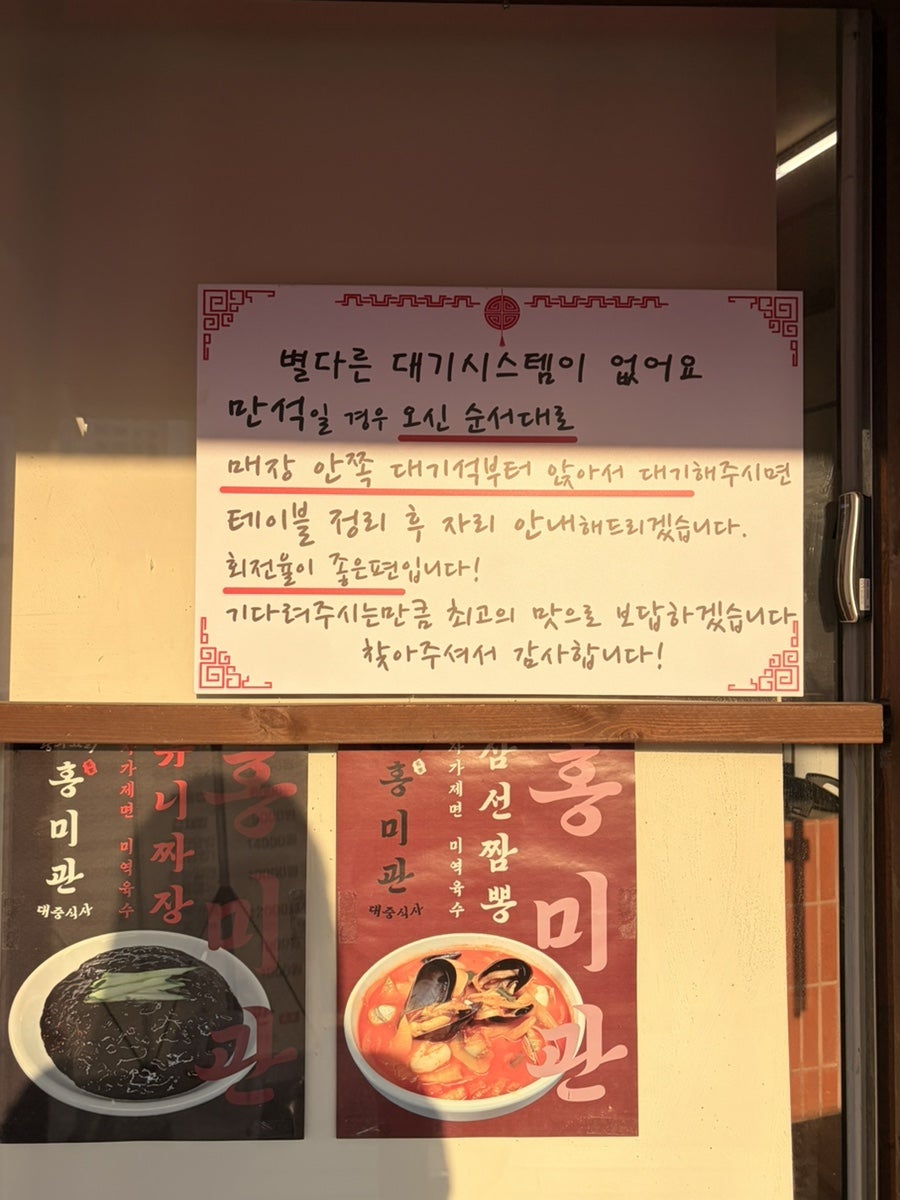 별다른 대기시스템이 없어요
만석일 경우 오신 순서대로
매장 안쪽 대기석부터 앉아서 대기해주시면
테이블 정리 후 자리 안내해드리겠습니다.
회전율이 좋은편입니다!
기다려주시는만큼 최고의 맛으로 보답하겠습니다
찾아주셔서 감사합니다!
홍미관
대중식사
자가제면 미역육수
유니짜장
홍미관
홍미관
대중식사
자가제면 미역육수
삼선짬뽕
홍미관